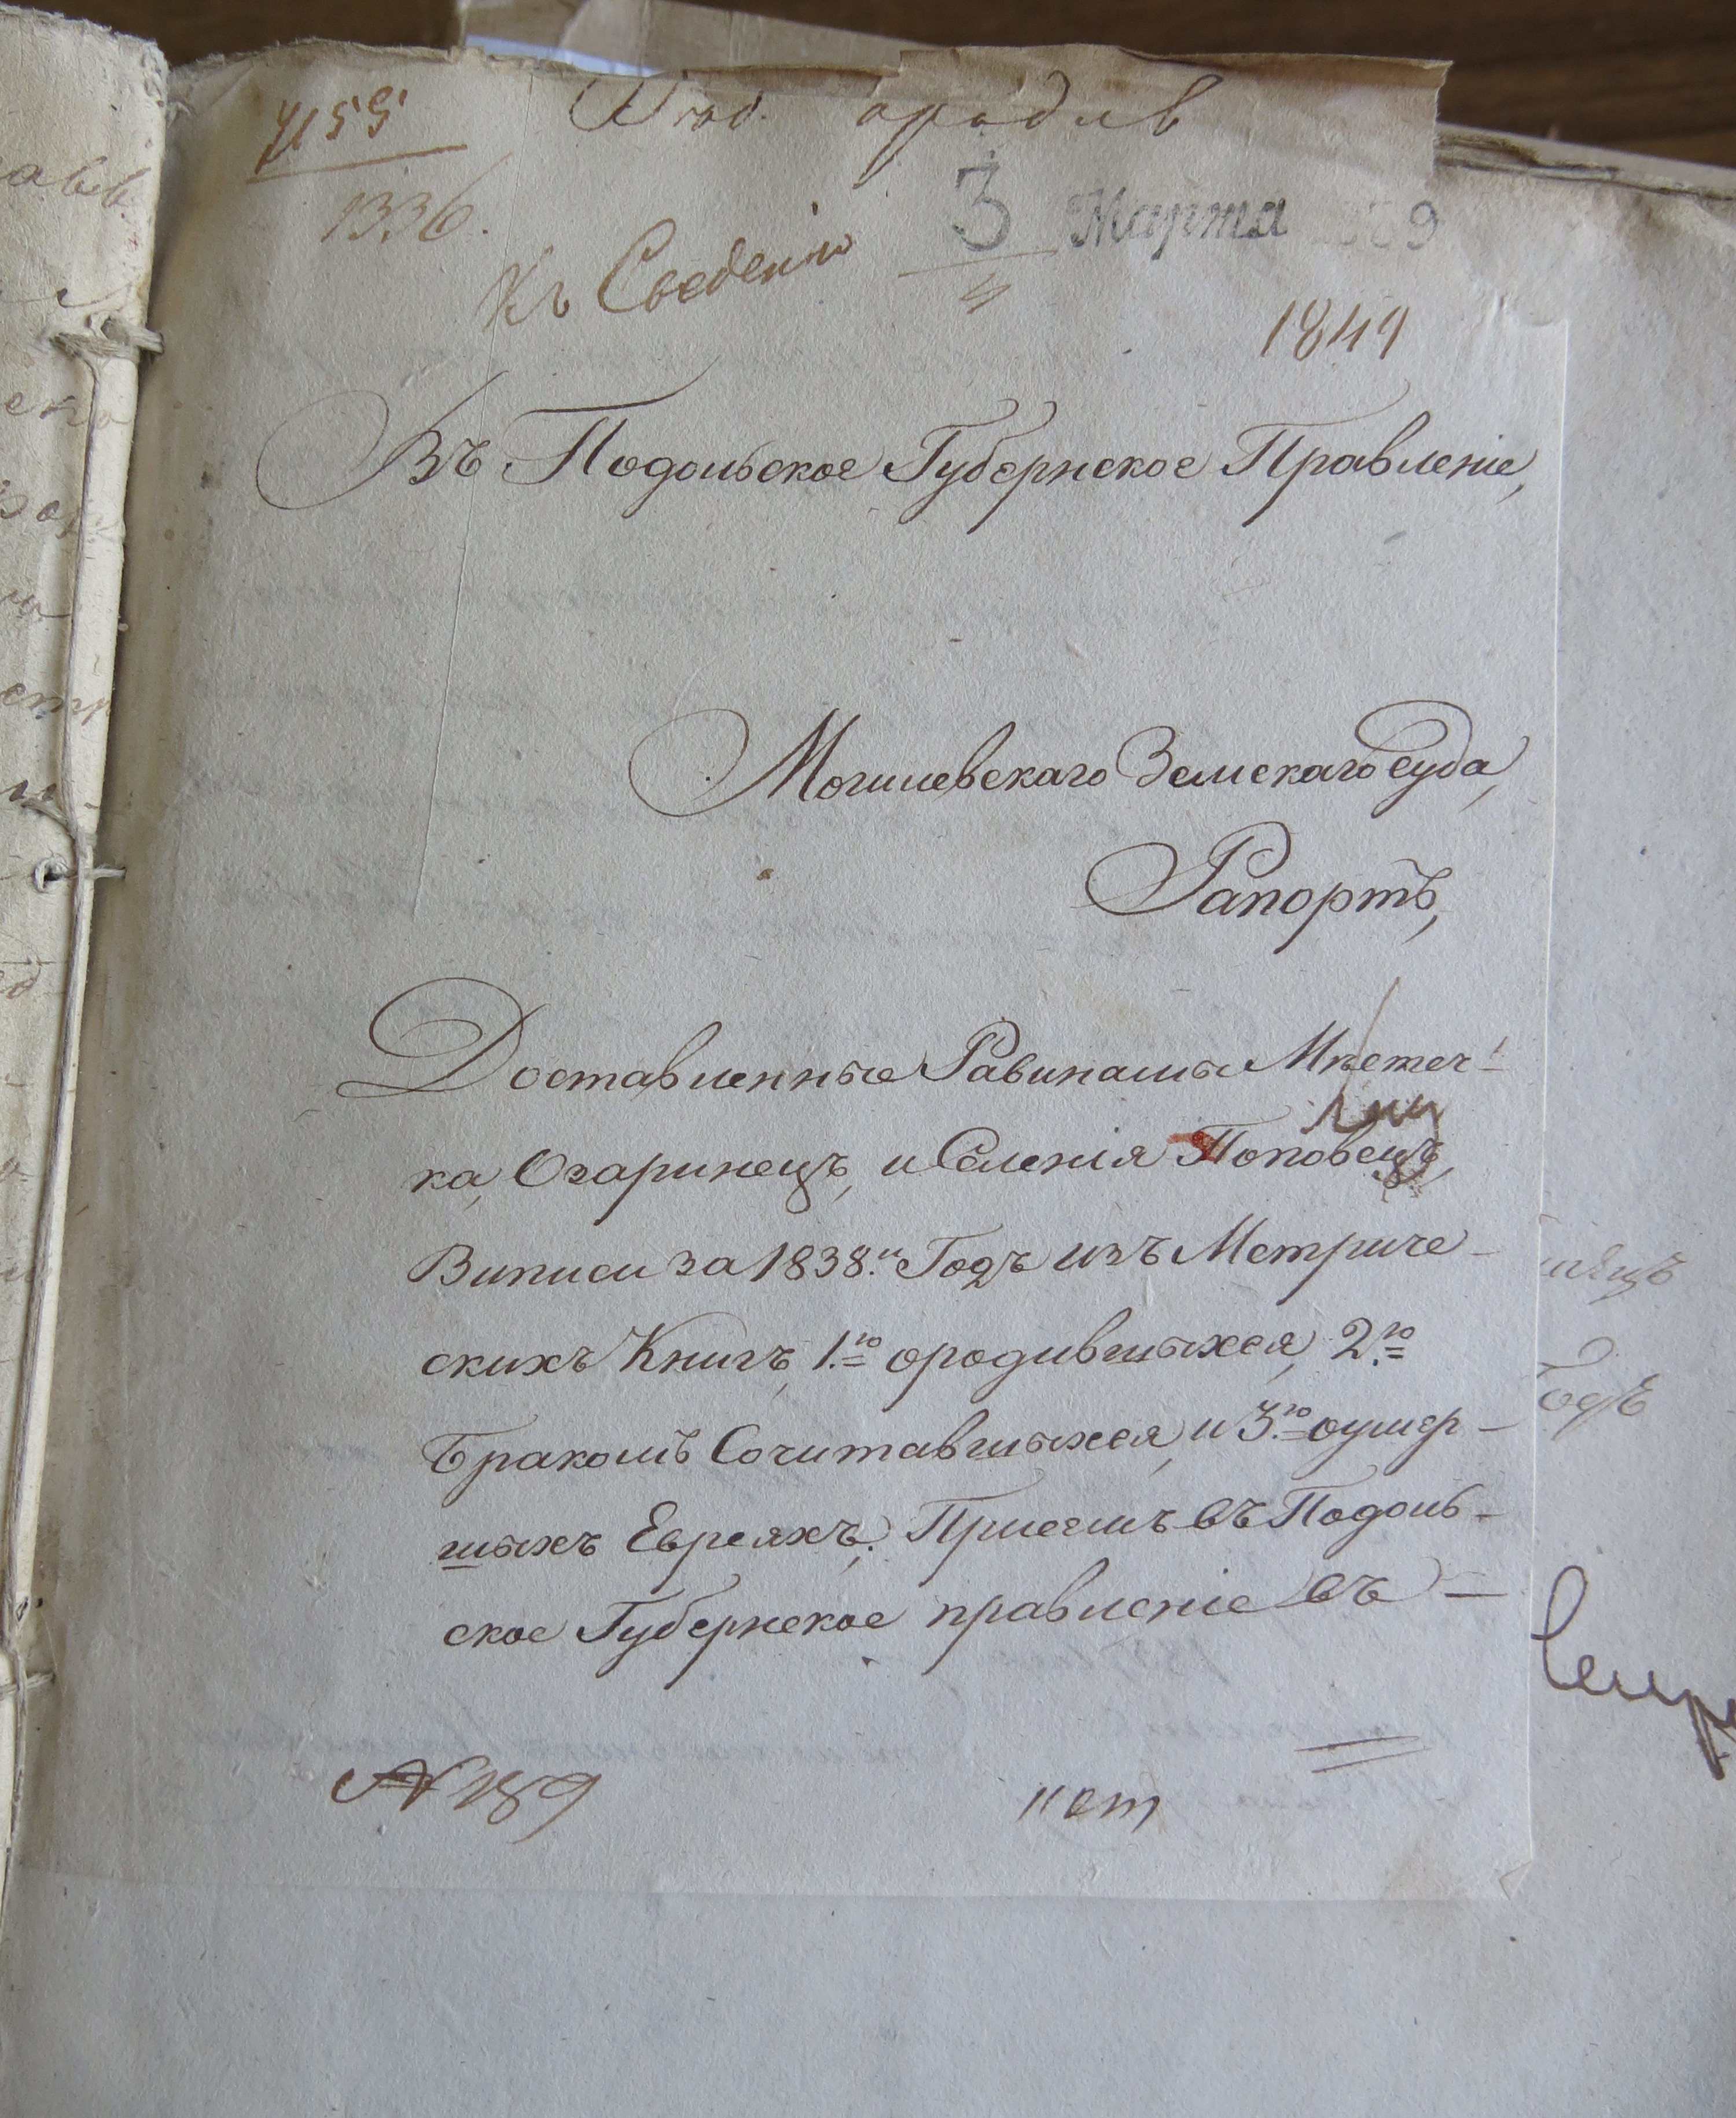 4155
1336.
Къ Сведению
3 Марта 1839
1841
Въ Подольское Губернское Правленіе,
Могилевскаго Земскаго суда,
Рапортъ,
Доставленные Равинамы Мѣстеч-
ка, Озаринецъ, и Селенія Поповецъ,
Виписи за 1838.й Годъ изъ Метриче-
скихъ Книгъ, 1.го ородившыхся, 2.го
Бракомъ Сочитавшыхся, и 3.го оумер-
шыхъ Евреяхъ; Приемъ въ Подоль-
ское Губернское правленіе въ -
№ 189